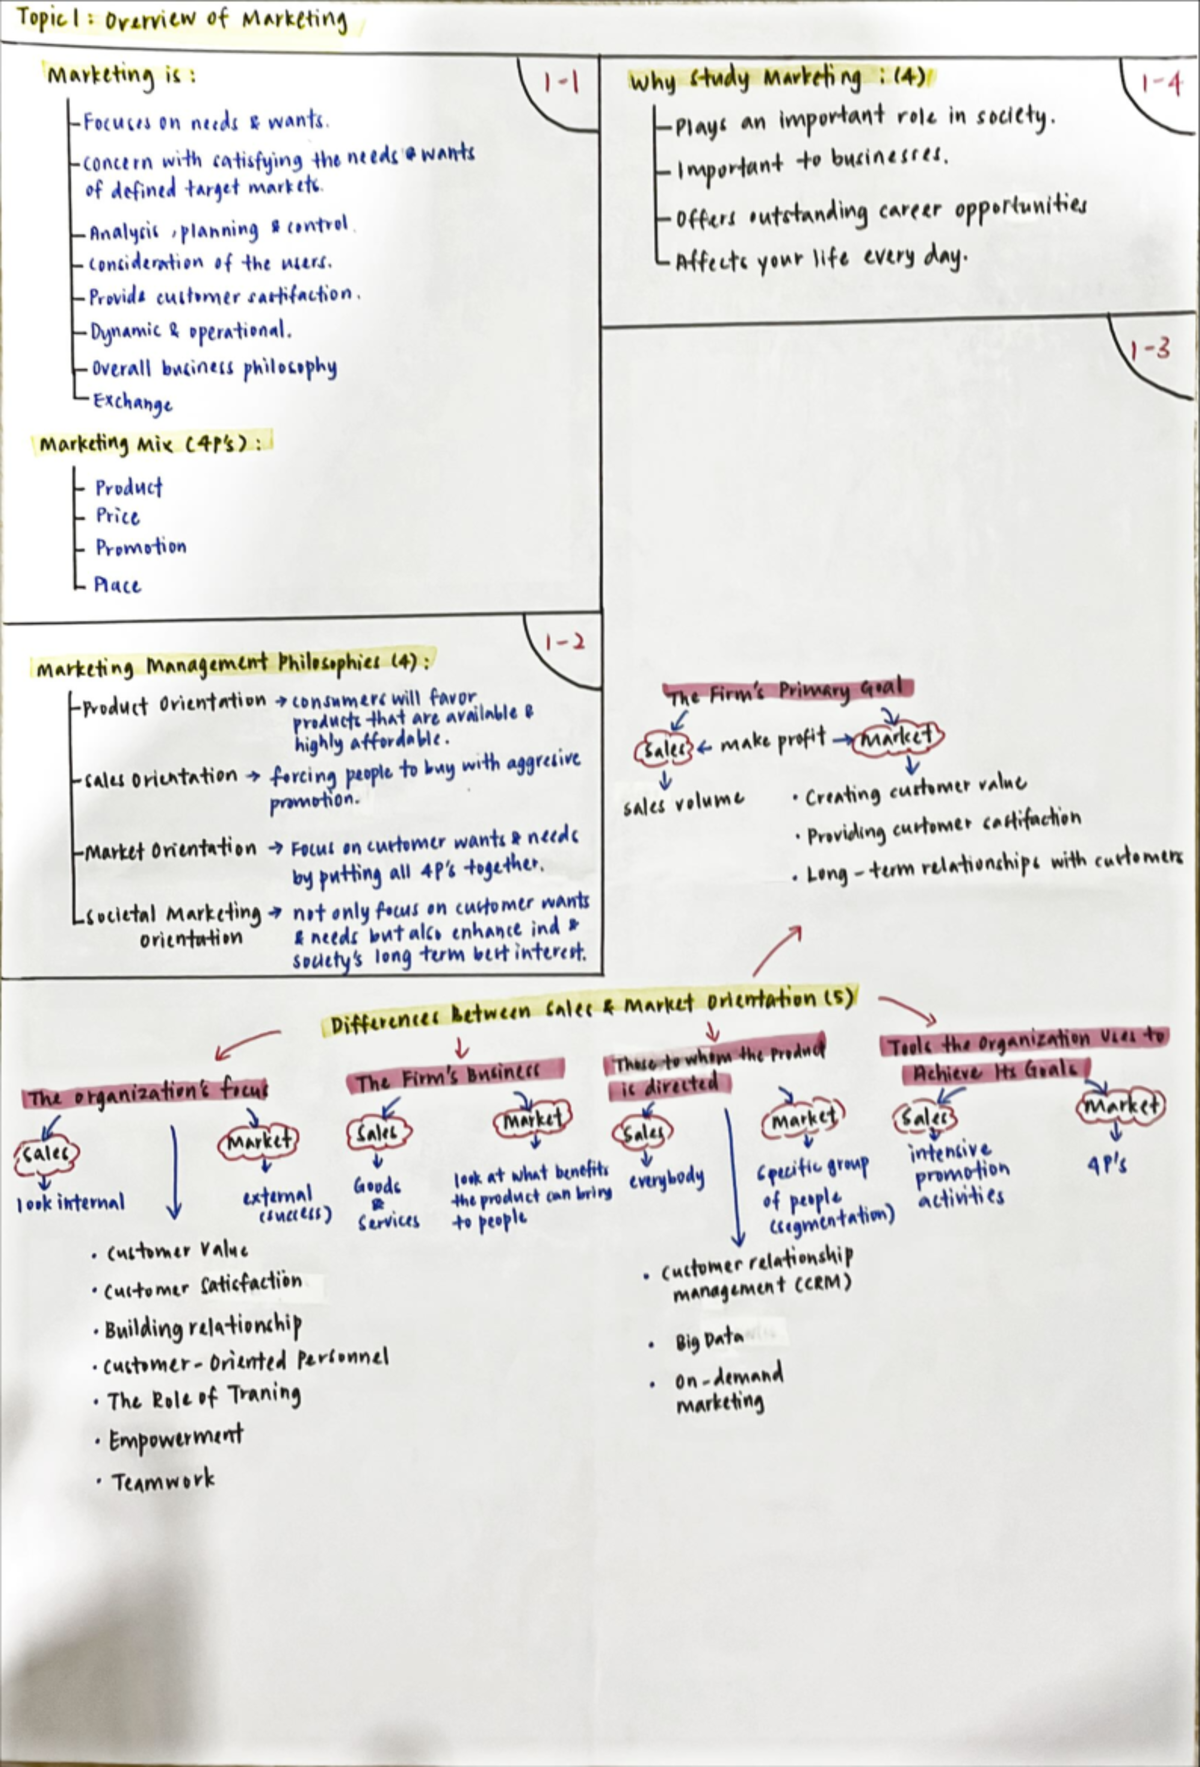 Topic 1: Overview of Marketing
1-1
Marketing is:
Focuses on needs & wants.
Concern with satisfying the needs & wants
of defined target markets.
Analysis, planning & control.
Consideration of the users.
Provide customer sartifaction.
Dynamic & operational.
Overall business philosophy
Exchange
Marketing Mix (4P's):
Product
Price
Promotion
Place
1-2
Marketing Management Philosophies (4):
Product Orientation → consumers will favor
products that are available &
highly affordable.
Sales Orientation → forcing people to buy with aggresive
promotion.
Market Orientation → Focus on customer wants & needs
by putting all 4P's together.
Societal Marketing → not only focus on customer wants
orientation & needs but also enhance ind &
society's long term best interest.
1-4
Why Study Marketing : (4)
Plays an important role in society.
Important to businesses.
Offers outstanding career opportunities
Affects your life every day.
1-3
The Firm's Primary Goal
Sales ← make profit → Market
sales volume
• Creating customer value
• Providing customer castifaction
• Long-term relationships with customers
Differences Between Sales & Market Orientation (5)
The organization's focus
Sales
Market
look internal
external
(success)
• Customer Value
• Customer Satisfaction
• Building relationship
• Customer-Oriented Personnel
• The Role of Traning
• Empowerment
• Teamwork
The Firm's Business
Sales
Market
Goods
&
Services
look at what benefits
the product can bring
to people
Those to whom the Product
is directed
Sales
Market
everybody
Specific group
of people
(segmentation)
• Customer relationship
management (CRM)
• Big Data
• On-demand
marketing
Tools the Organization Uses to
Achieve Its Goals
Sales
Market
intensive
promotion
activities
4P's